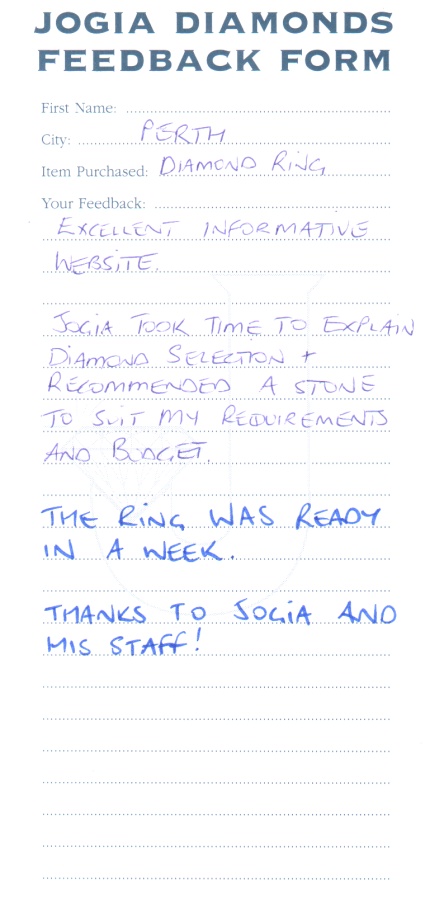 JOGIA DIAMONDS
FEEDBACK FORM
First Name:
City: PERTH
Item Purchased: DIAMOND RING
Your Feedback:
EXCELLENT INFORMATIVE
WEBSITE.
JOGIA TOOK TIME TO EXPLAIN
DIAMOND SELECTION +
RECOMMENDED A STONE
TO SUIT MY REQUIREMENTS
AND BUDGET.
THE RING WAS READY
IN A WEEK.
THANKS TO JOGIA AND
HIS STAFF!